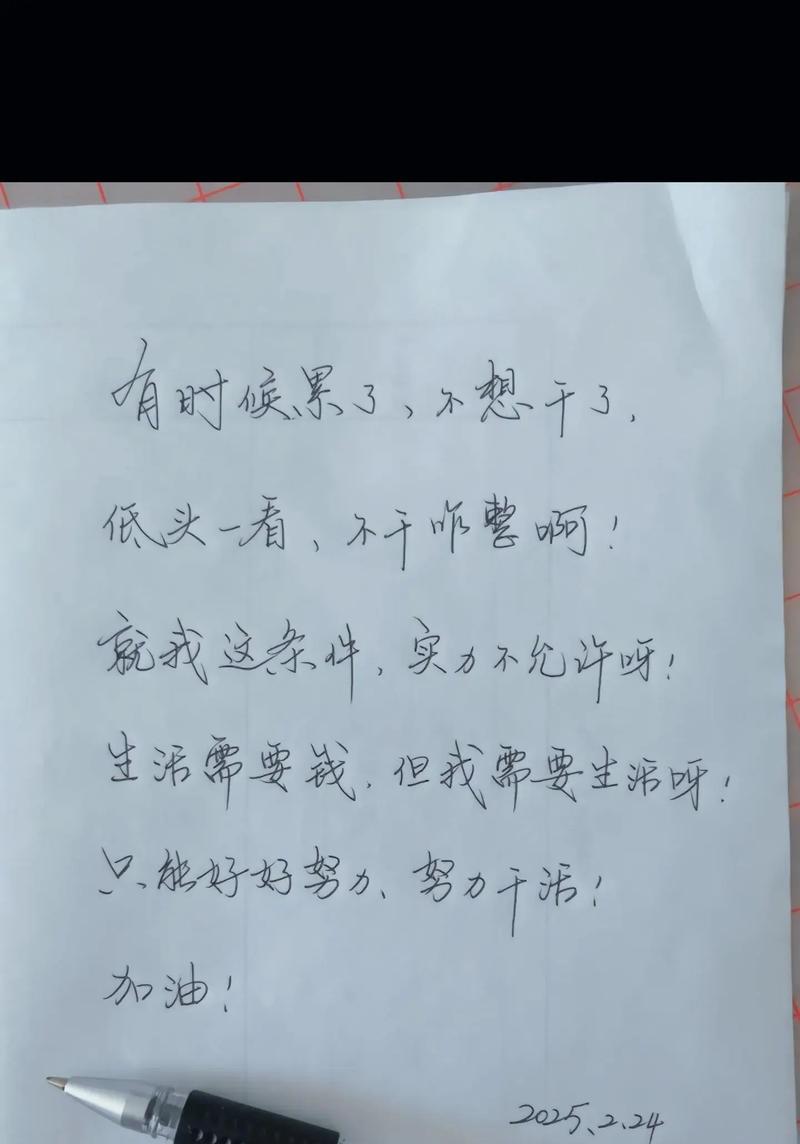 有时候累了、不想干了,
低头一看、不干咋整啊！
就我这条件,实力不允许呀！
生活需要钱,但我需要生活呀！
只能好好努力、努力干活！
加油！
2025.2.24